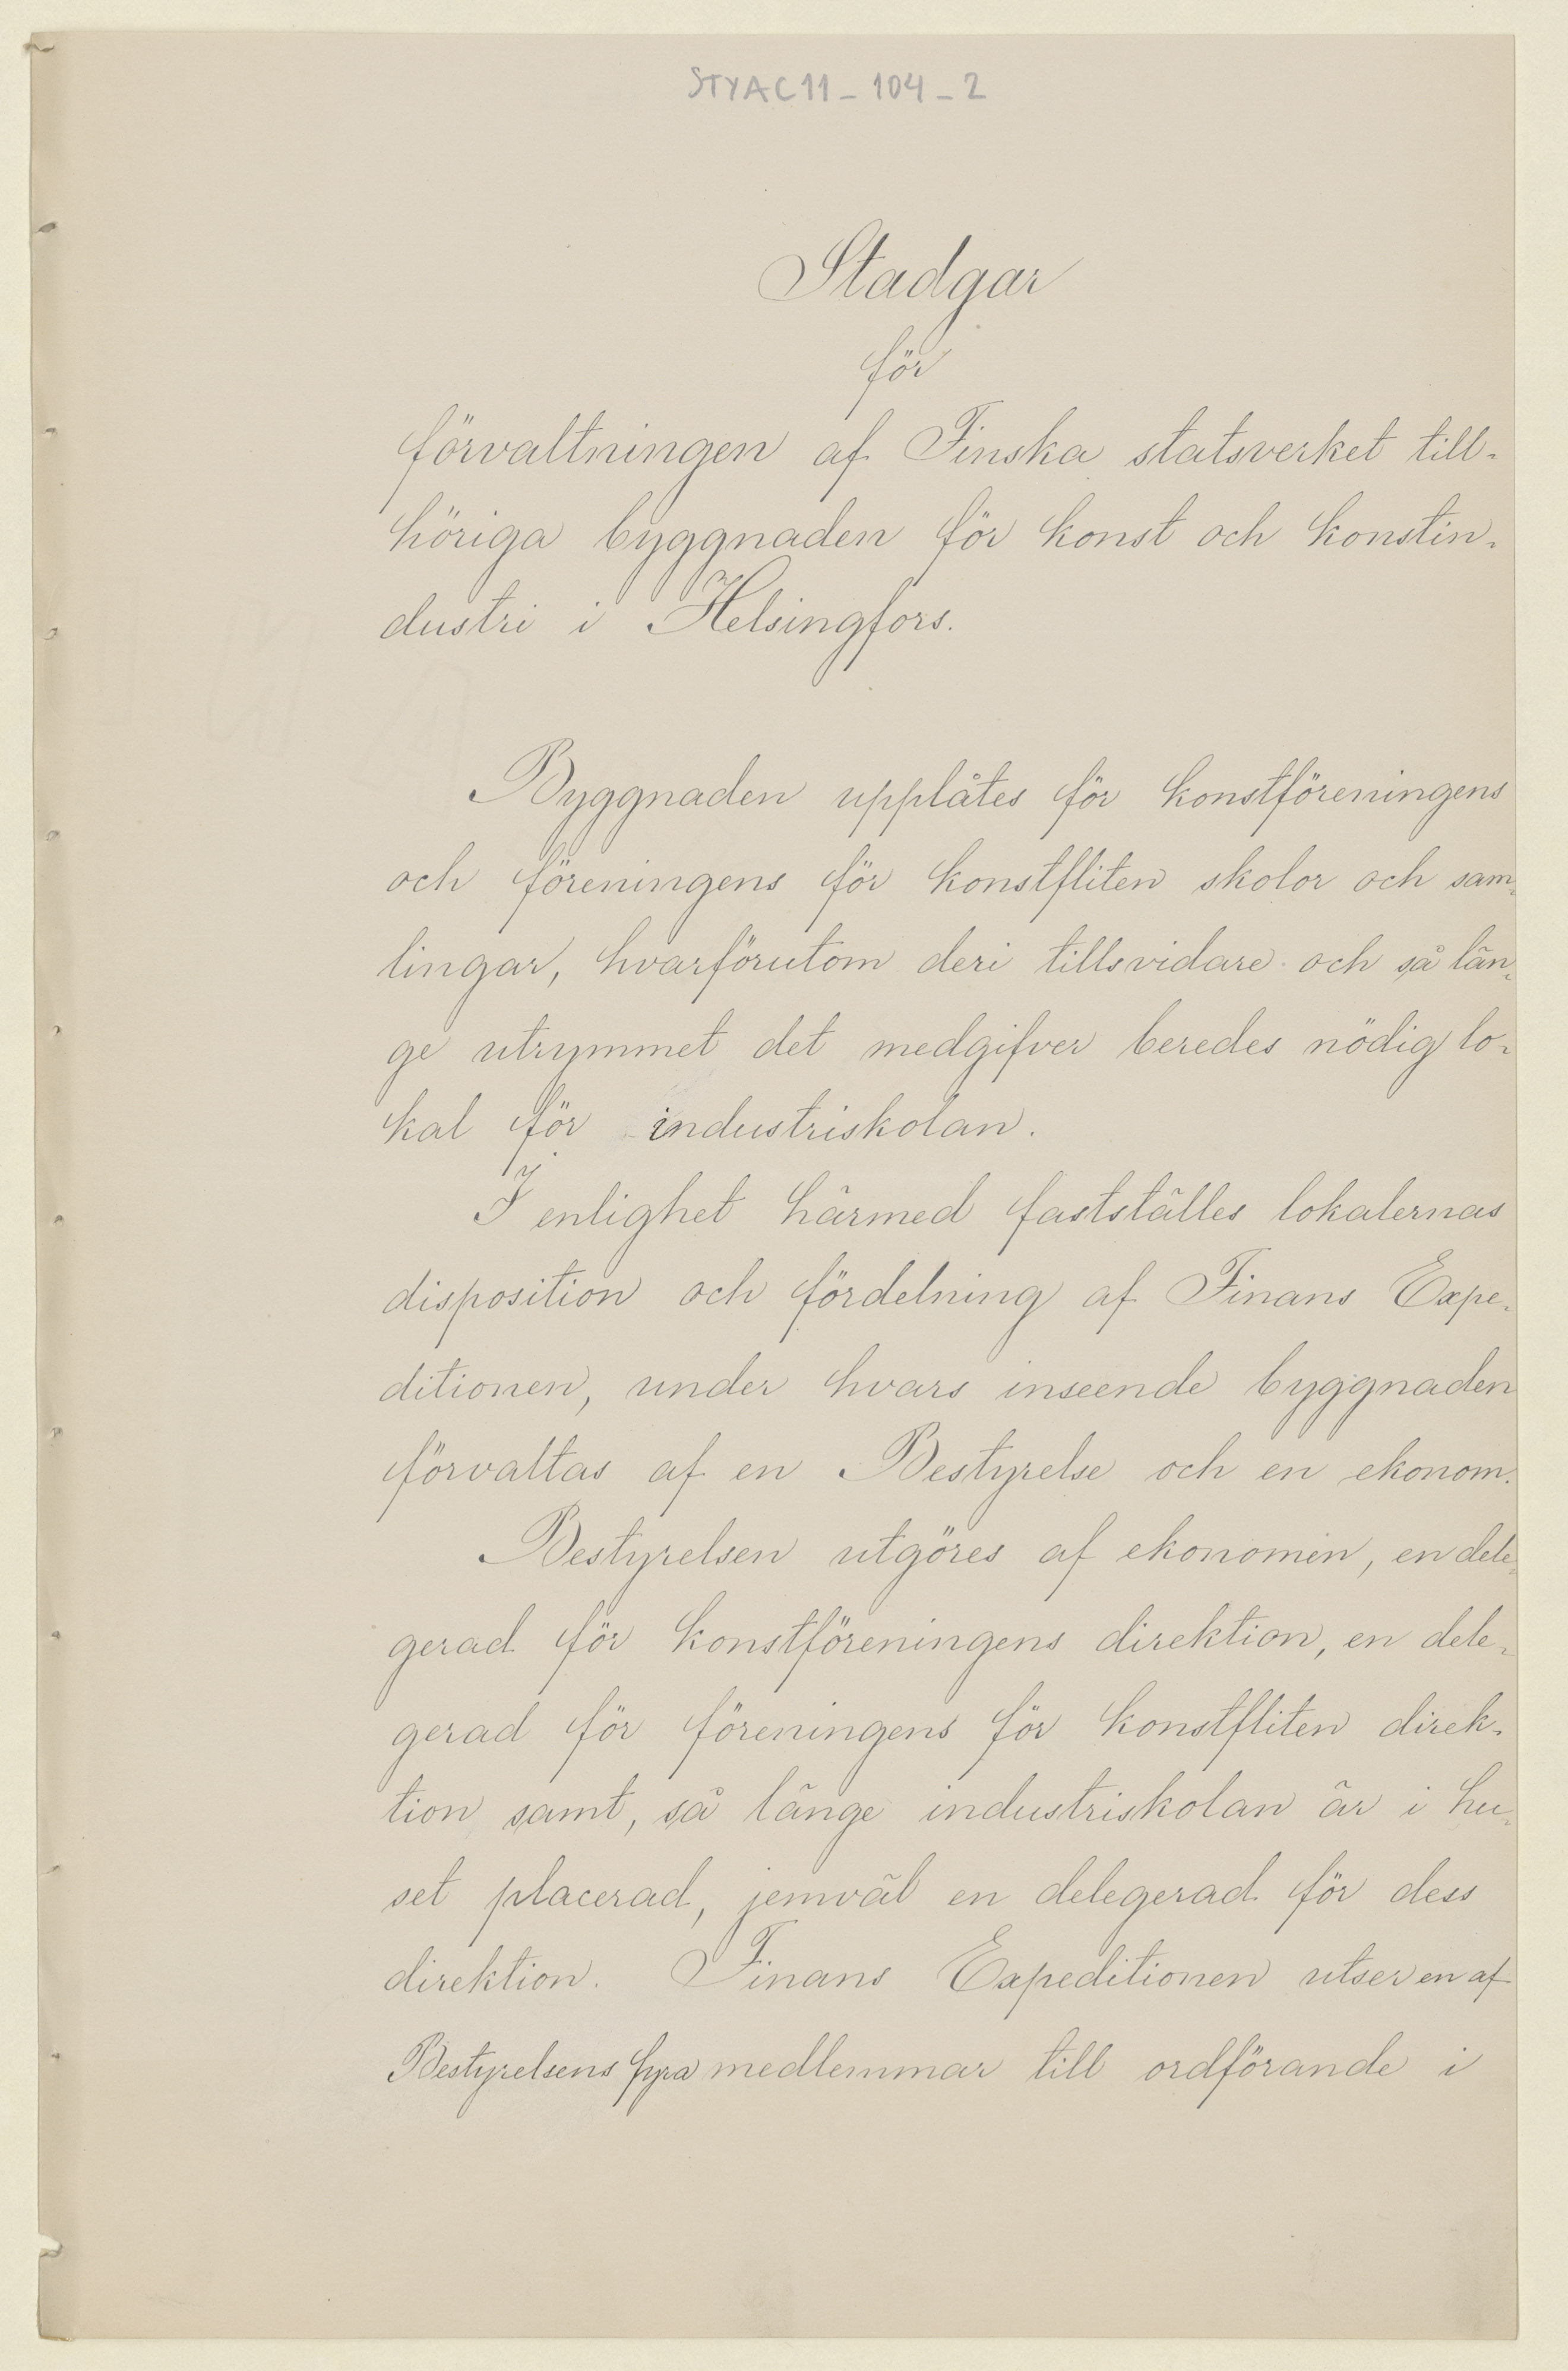 STYAC11_104_2
Stadgar
för
förvaltningen af Finska statsverket till-
höriga byggnaden för konst och konstin-
dustri i Helsingfors.
Byggnaden upplåtes för konstföreningens
och föreningens för konstfliten skolor och sam-
lingar, hvarförutom deri tillsvidare och så län-
ge utrymmet det medgifver beredes nödig lo-
kal för industriskolan.
I enlighet härmed fastställes lokalernas
disposition och fördelning af Finans Expe-
ditionen, under hvars inseende byggnaden
förvaltas af en Bestyrelse och en ekonom.
Bestyrelsen utgöres af ekonomen, en dele-
gerad för konstföreningens direktion, en dele-
gerad för föreningens för konstfliten direk-
tion samt, så länge industriskolan är i hu-
set placerad, jemväl en delegerad för dess
direktion. Finans Expeditionen utser en af
Bestyrelsens fyra medlemmar till ordförande i